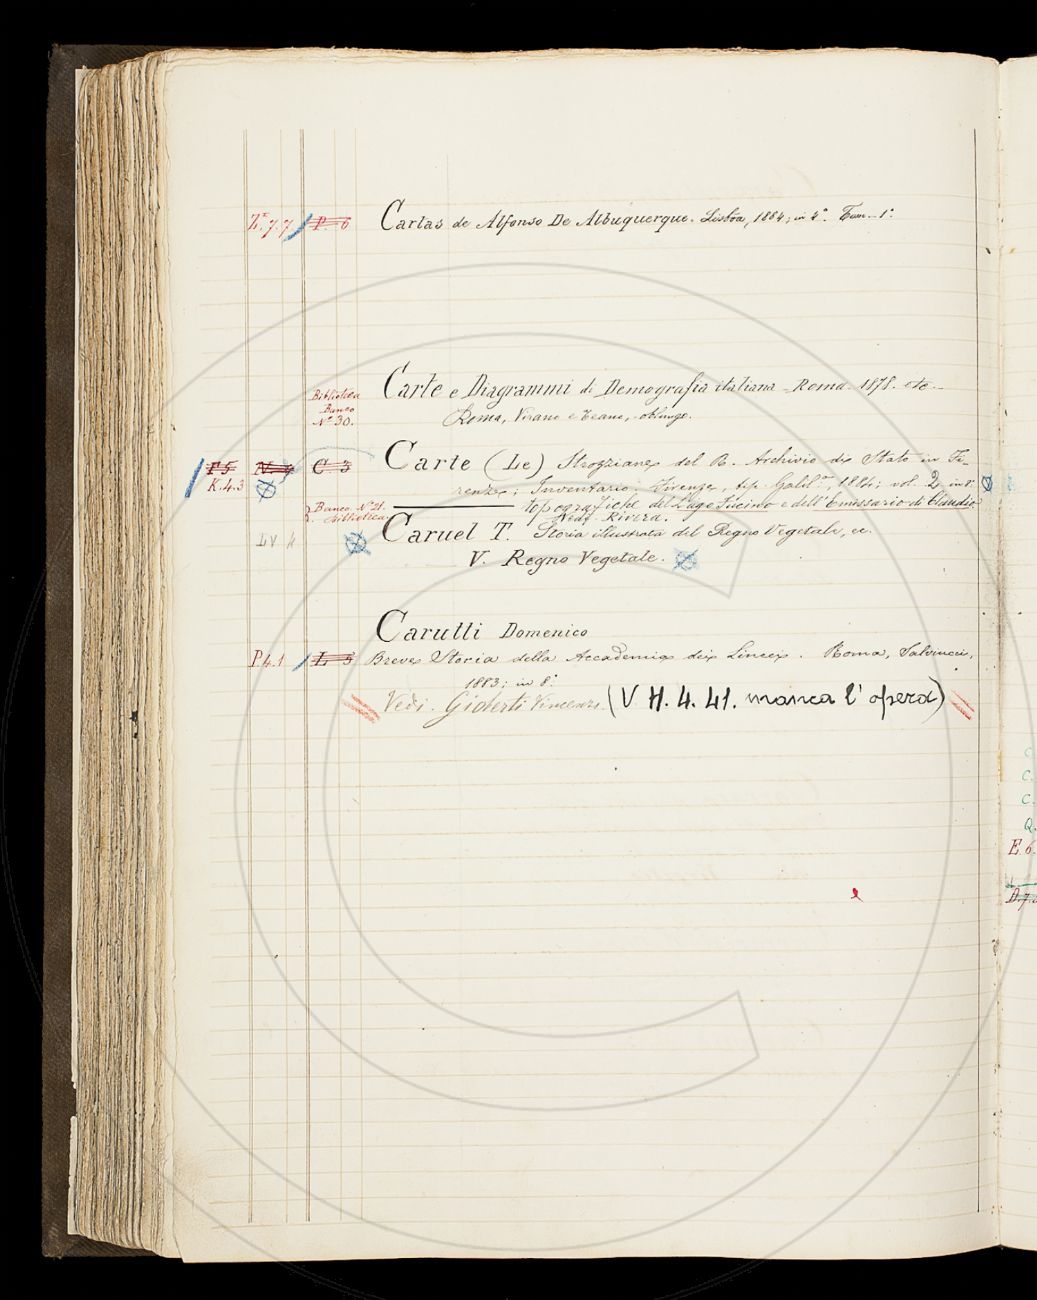 Z.E 7.7 P. 6 Cartas de Alfonso De Albuquerque. Lisbôa, 1884; in 4.° Tom. 1.°
Biblioteca Banco N.° 30.
Carte e Diagrammi di Demografia italiana - Roma 1878. etc.
Roma, Virano e Teano, oblungo.
F 5 C 3 Carte (Le) Strozziane del R. Archivio di Stato in Fi-
K.4.3 renze; Inventario. Firenze, tip. Galil.na, 1884; vol. 2 in 8°
Banco N.° 21. Biblioteca topografiche del Lago Fucino e dell'Emissario di Claudio
Vedi Rivera.
LV 4 Caruel T. Storia illustrata del Regno Vegetale, ec.
V. Regno Vegetale.
Carutti Domenico
P 4.1 L 5 Breve Storia della Accademia dei Lincei. Roma, Salviucci,
1883; in 8.°
Vedi. Gioberti Vincenzo. (V H. 4. 41. manca l'opera)
C.
C.
C.
Q.
E 6.
D.7.